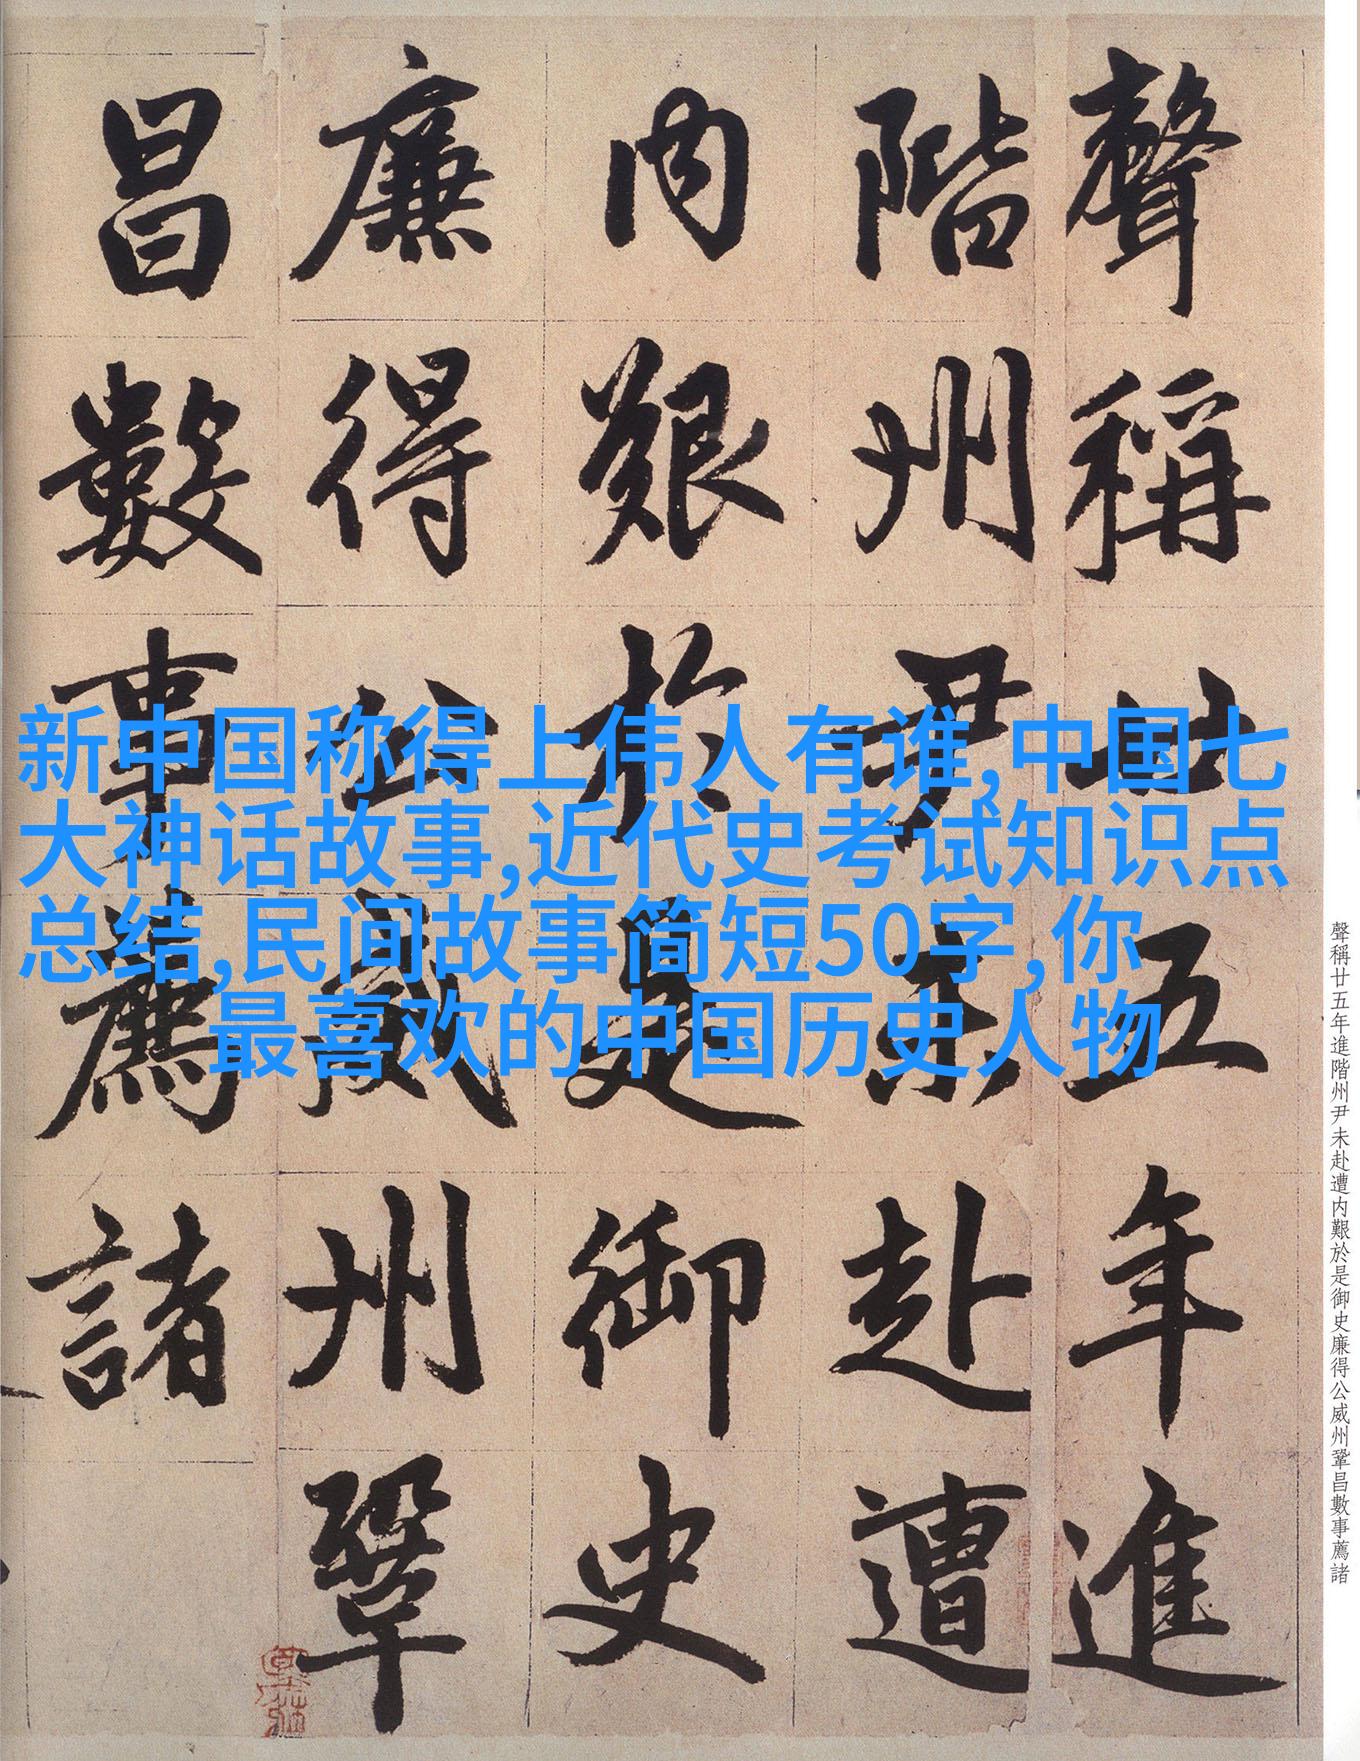 聲稱廿五年進
階州尹未赴遭
内艱於是御史
廉得公威州鞏
昌數事薦諸
新中国称得上伟人有谁,中国七
大神话故事,近代史考试知识点
总结,民间故事简短50字,你
最喜欢的中国历史人物
聲稱廿五年進階州尹未赴遭内艱於是御史廉得公威州鞏昌數事薦諸